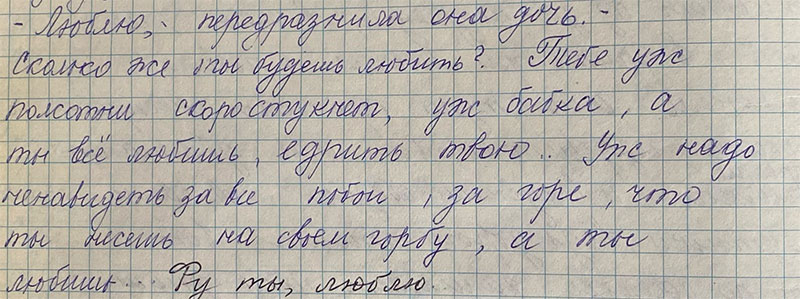 - Люблю, - передразнила она дочь. -
Сколько же ты будешь любить? Тебе уж
полсотни скоро стукнет, уж бабка, а
ты всё любишь, едрить твою.. Уж надо
ненавидеть за все побои, за горе, что
ты несешь на своем горбу, а ты
любишь... Фу ты, люблю.